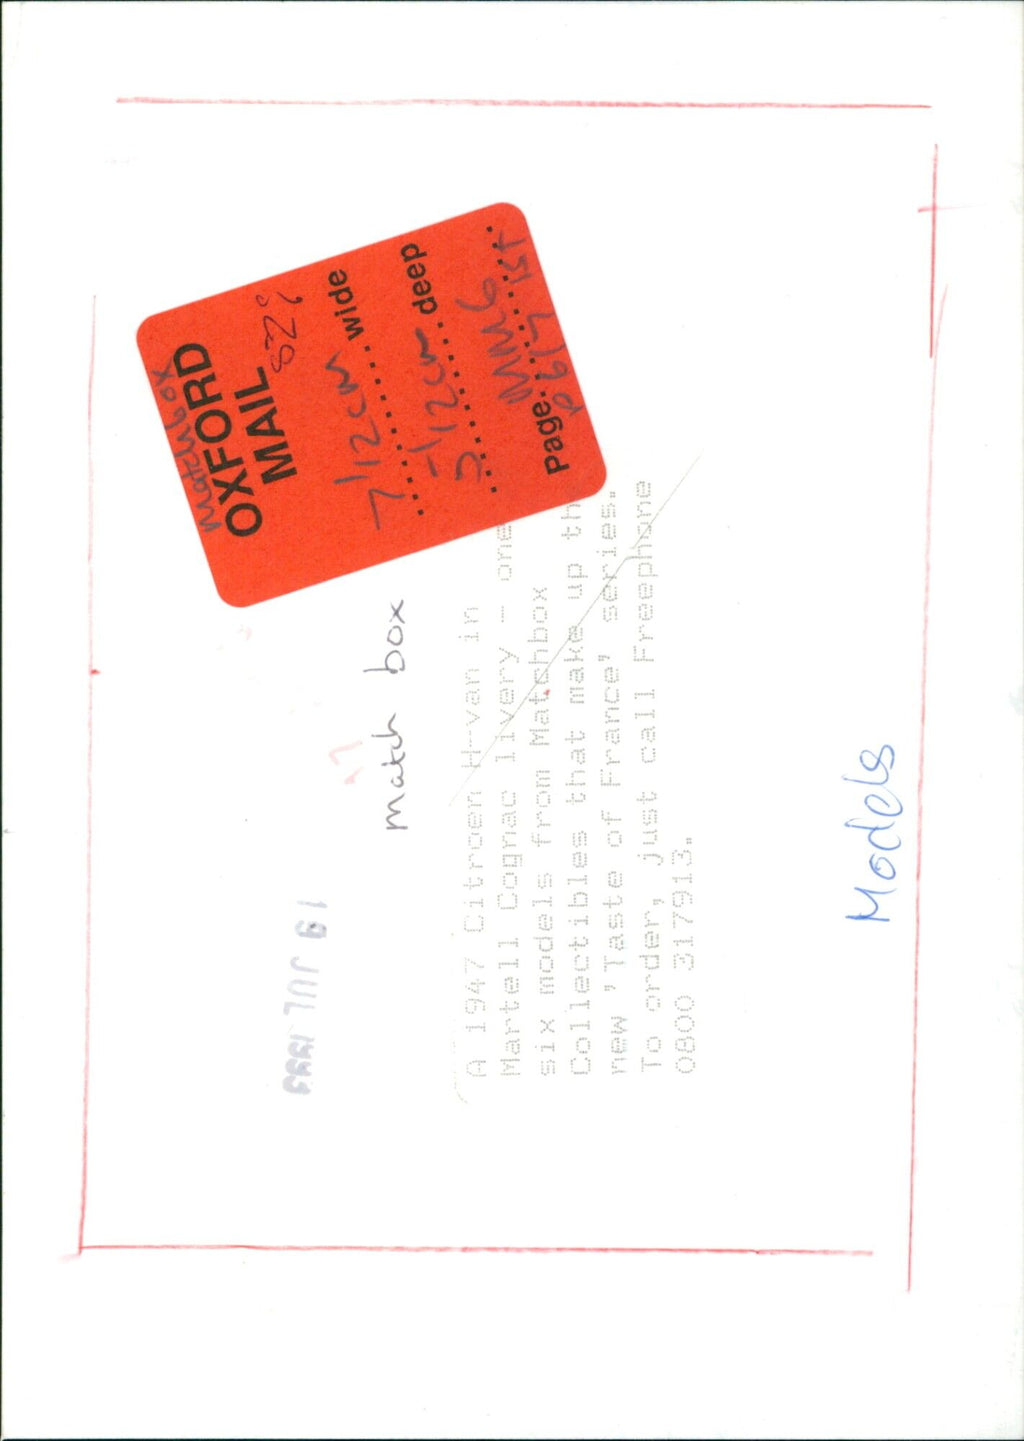 Matchbox
OXFORD
MAIL
82%
7 1/2 cm wide
5 1/2 cm deep
Page.
p 6/7 1st
match box
A 1947 Citroen H-van in
Martell Cognac livery - one
six models from Matchbox
Collectibles that make up th
new 'Taste of France' series.
To order, just call Freephone
0800 317913.
19 JUL 1993
Models